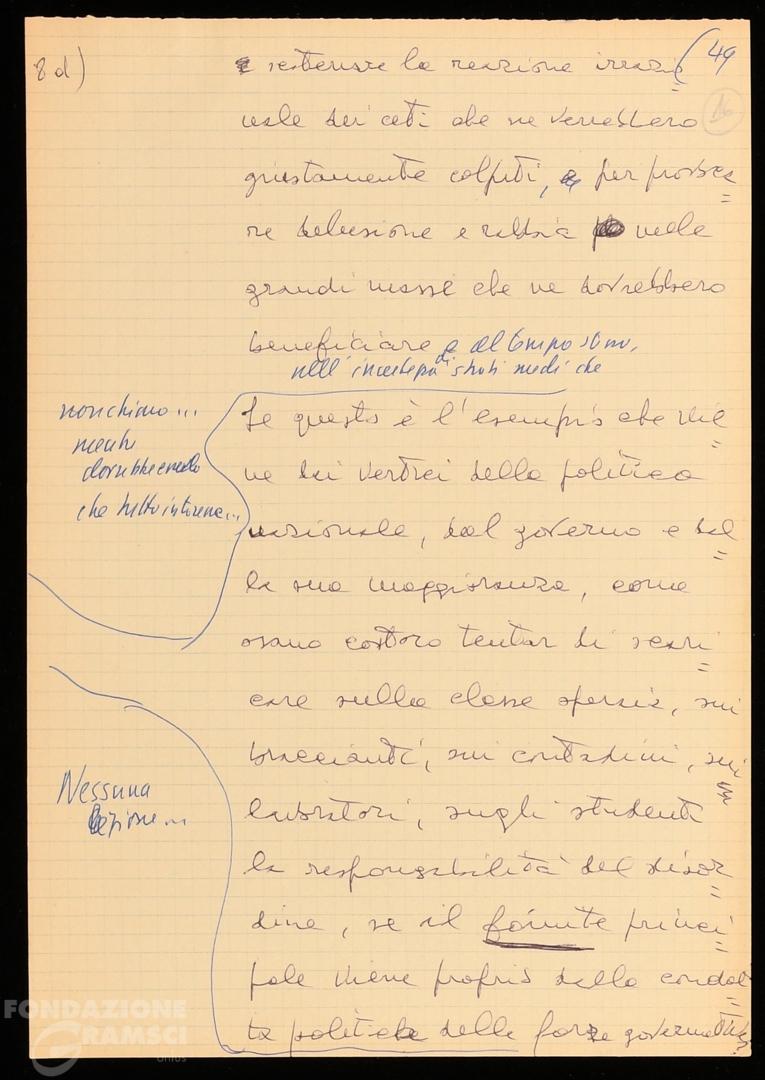 8 d)
(49
16
e scatenare la reazione irrazio=
nale dei ceti che ne verrebbero
giustamente colpiti, e per provoca=
re delusione e rabbia nelle
grandi masse che ne dovrebbero
beneficiare e al tempo stesso,
nell'incertezza di strati medi che
Se questo è l'esempio che vie=
ne dai vertici della politica
nazionale, dal governo e dal=
la sua maggioranza, come
osano costoro tentar di scari=
care sulla classe operaia, sui
braccianti, sui contadini, sui
lavoratori, sugli studenti
la responsabilità del disor=
dine, se il fomite princi=
pale viene proprio dalla condot=
ta politica delle forze governative?
non chiamo...
mentre
dovrebbe
che tutto
Nessuna
lezione...
FONDAZIONE
GRAMSCI
onlus